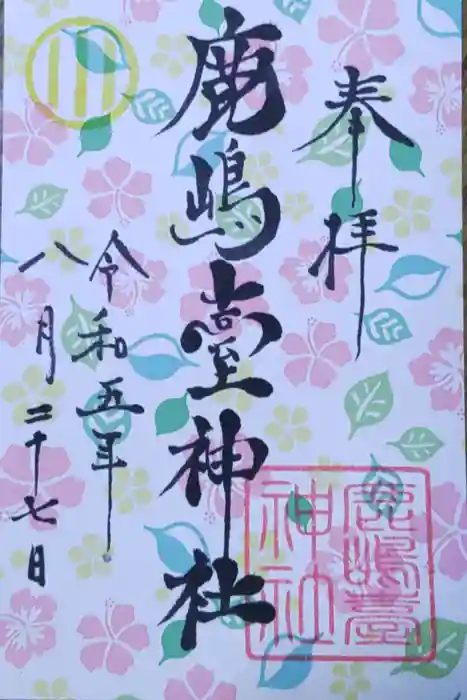 奉拝
鹿嶋臺神社
令和五年
八月二十七日
鹿嶋臺
神社